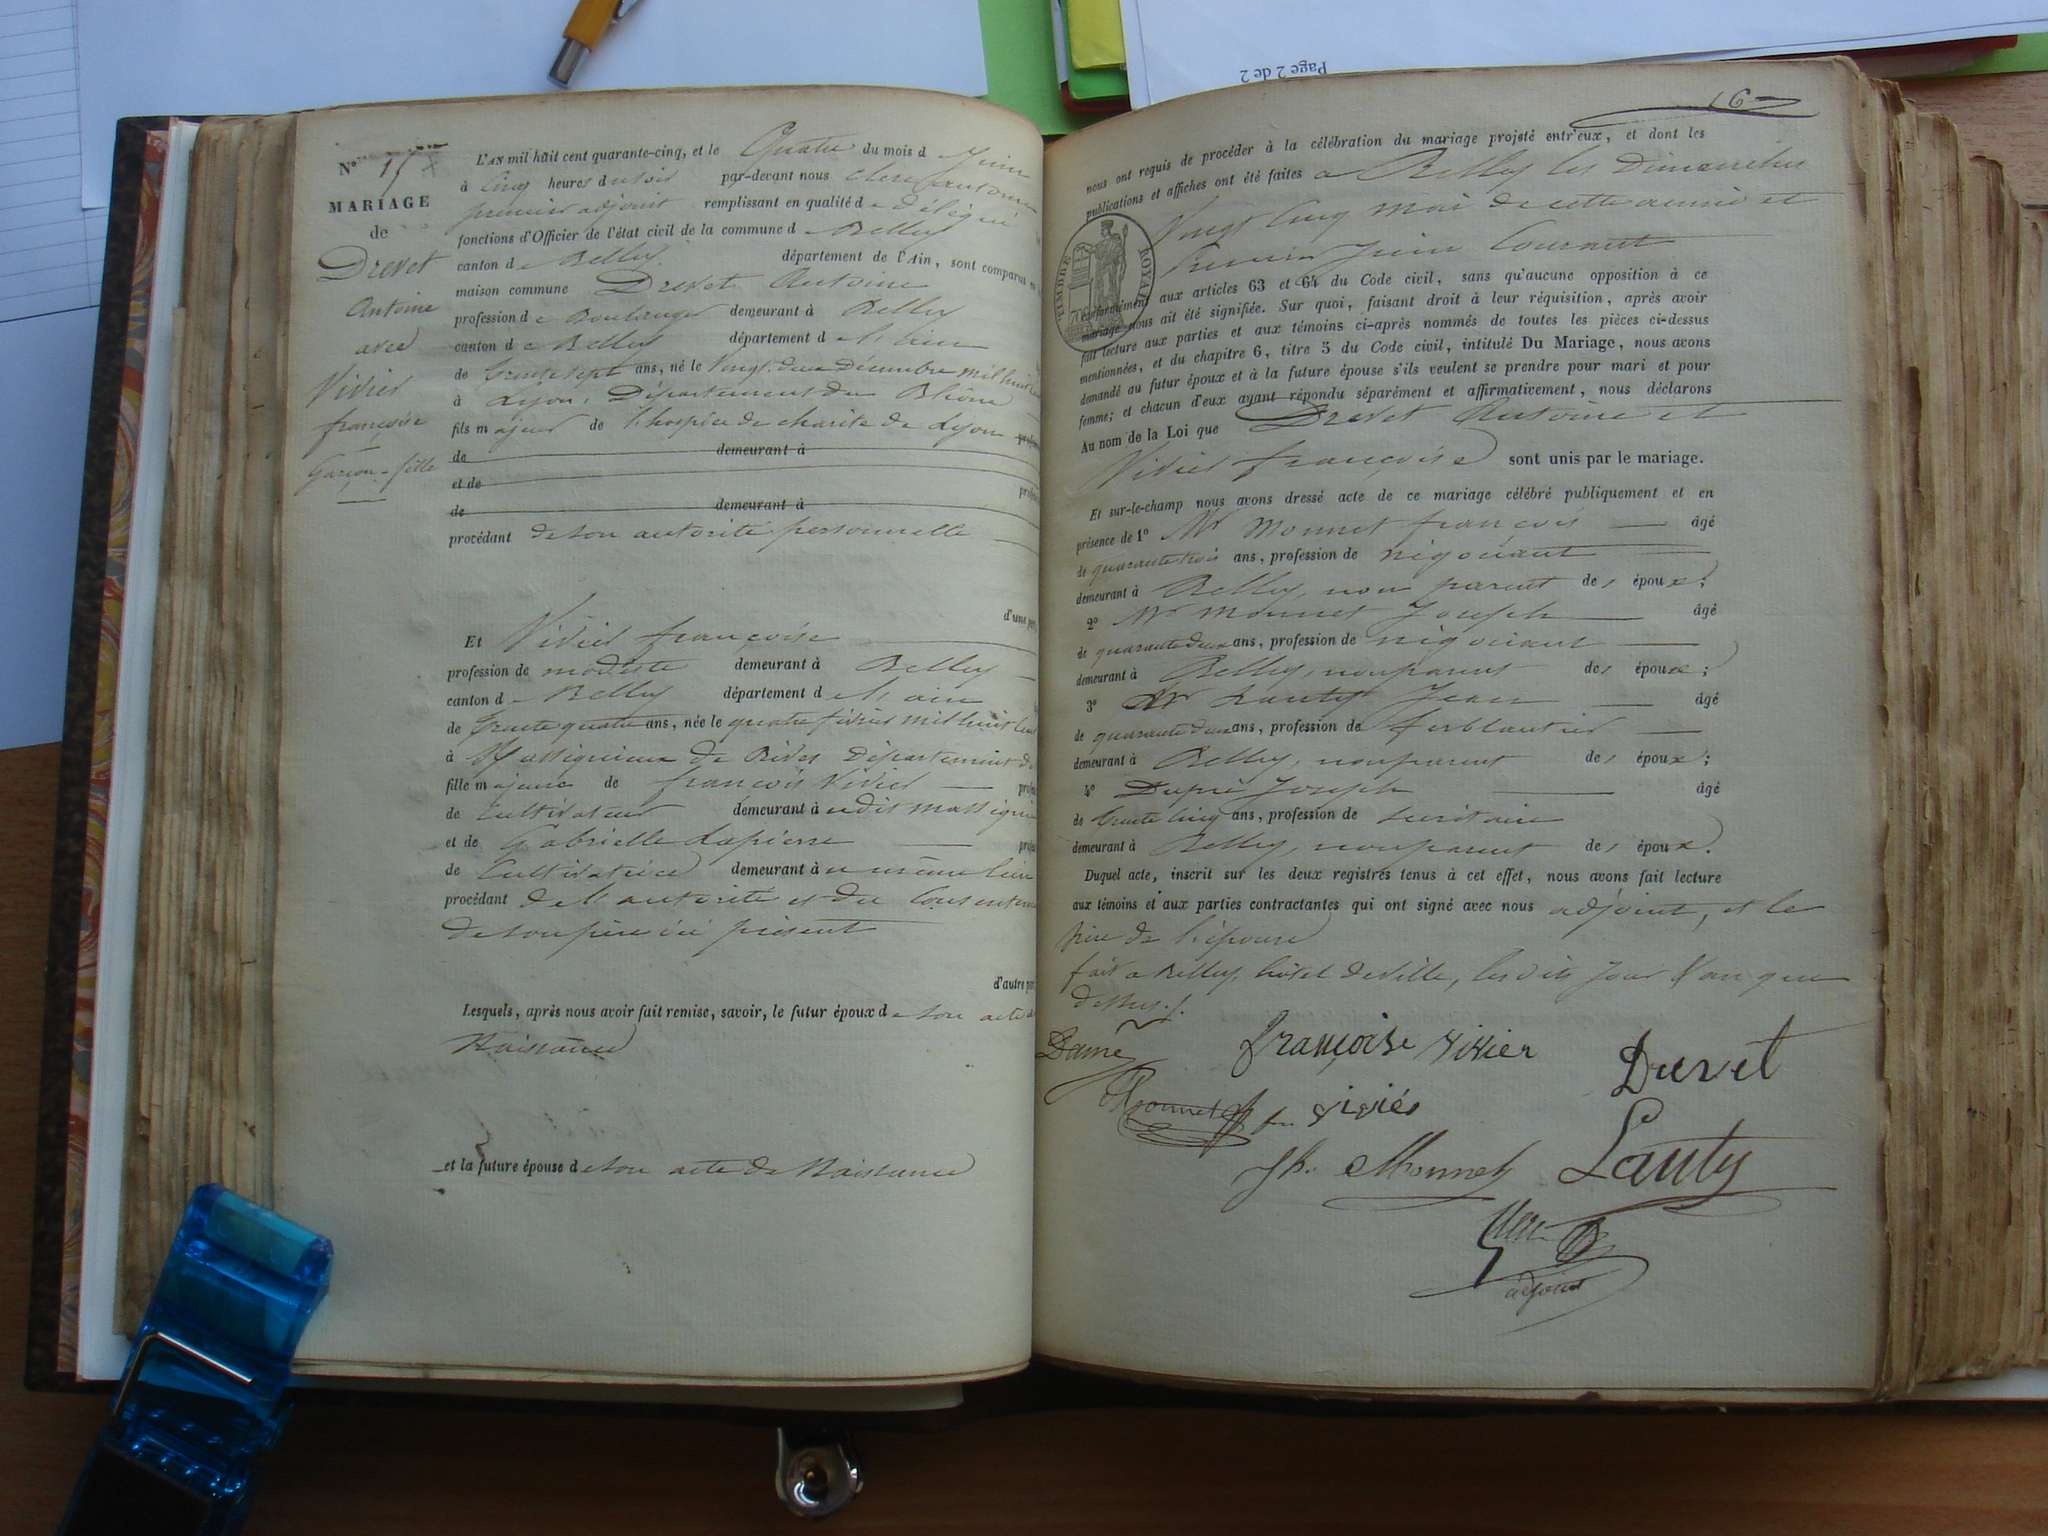 Page 2 de 2
N° 15
MARIAGE
de
Drevet
Antoine
avec
Vivier
françoise
Garçon - fille
L'AN mil huit cent quarante-cinq, et le Quatre du mois de Juin
à Cinq heures du soir par-devant nous Clerc antoine
premier adjoint remplissant en qualité de délégué
fonctions d'Officier de l'état civil de la commune de Belley
canton de Belley département de l'Ain, sont comparus en
maison commune Drevet Antoine
profession de Boulanger demeurant à Belley
canton de Belley département de l'ain
de trente sept ans, né le Vingt deux Décembre mil huit cent
à Lyon, Département du Rhône
fils majeur de l'hospice de charité de Lyon
de demeurant à
et de
de demeurant à
procédant de son autorité personnelle
d'une part,
Et Vivier françoise
profession de modiste demeurant à Belley
canton de Belley département de l'ain
de trente quatre ans, née le quatre février mil huit cent
à Massignieux de Rives Département de
fille majeure de françois Vivier
de Cultivateur demeurant à udit massignieu
et de Gabrielle Lapierre
de Cultivatrice demeurant à u même lieu
procédant de l'autorité et du Consentement
de son père ici présent
d'autre part
Lesquels, après nous avoir fait remise, savoir, le futur époux de son acte de
Naissance
et la future épouse de son acte de Naissance
16
nous ont requis de procéder à la célébration du mariage projeté entr'eux, et dont les
publications et affiches ont été faites a Belley les Dimanches
Vingt Cinq mai de cette année et
Premier Juin Courant
TIMBRE ROYAL
conformément aux articles 63 et 64 du Code civil, sans qu'aucune opposition à ce
mariage nous ait été signifiée. Sur quoi, faisant droit à leur réquisition, après avoir
fait lecture aux parties et aux témoins ci-après nommés de toutes les pièces ci-dessus
mentionnées, et du chapitre 6, titre 5 du Code civil, intitulé Du Mariage, nous avons
demandé au futur époux et à la future épouse s'ils veulent se prendre pour mari et pour
femme; et chacun d'eux ayant répondu séparément et affirmativement, nous déclarons
Au nom de la Loi que Drevet Antoine et
Vivier françoise sont unis par le mariage.
Et sur-le-champ nous avons dressé acte de ce mariage célébré publiquement et en
présence de 1° Mr Monnet françois âgé
de quarante trois ans, profession de négociant
demeurant à Belley, non parent des époux;
2° Mr Monnet Joseph âgé
de quarante deux ans, profession de négociant
demeurant à Belley, non parent des époux;
3° Mr Lauty Jean âgé
de quarante deux ans, profession de ferblantier
demeurant à Belley, non parent des époux;
4° Dupré Joseph âgé
de trente cinq ans, profession de secrétaire
demeurant à Belley, non parent des époux.
Duquel acte, inscrit sur les deux registres tenus à cet effet, nous avons fait lecture
aux témoins et aux parties contractantes qui ont signé avec nous adjoint, et le
père de l'épouse
fait a Belley, hôtel de ville, les dits jour & an que
dessus./.
françoise Vivier Drevet
Monnet fr. viviés
Jh. Monnet Lauty
adjoint